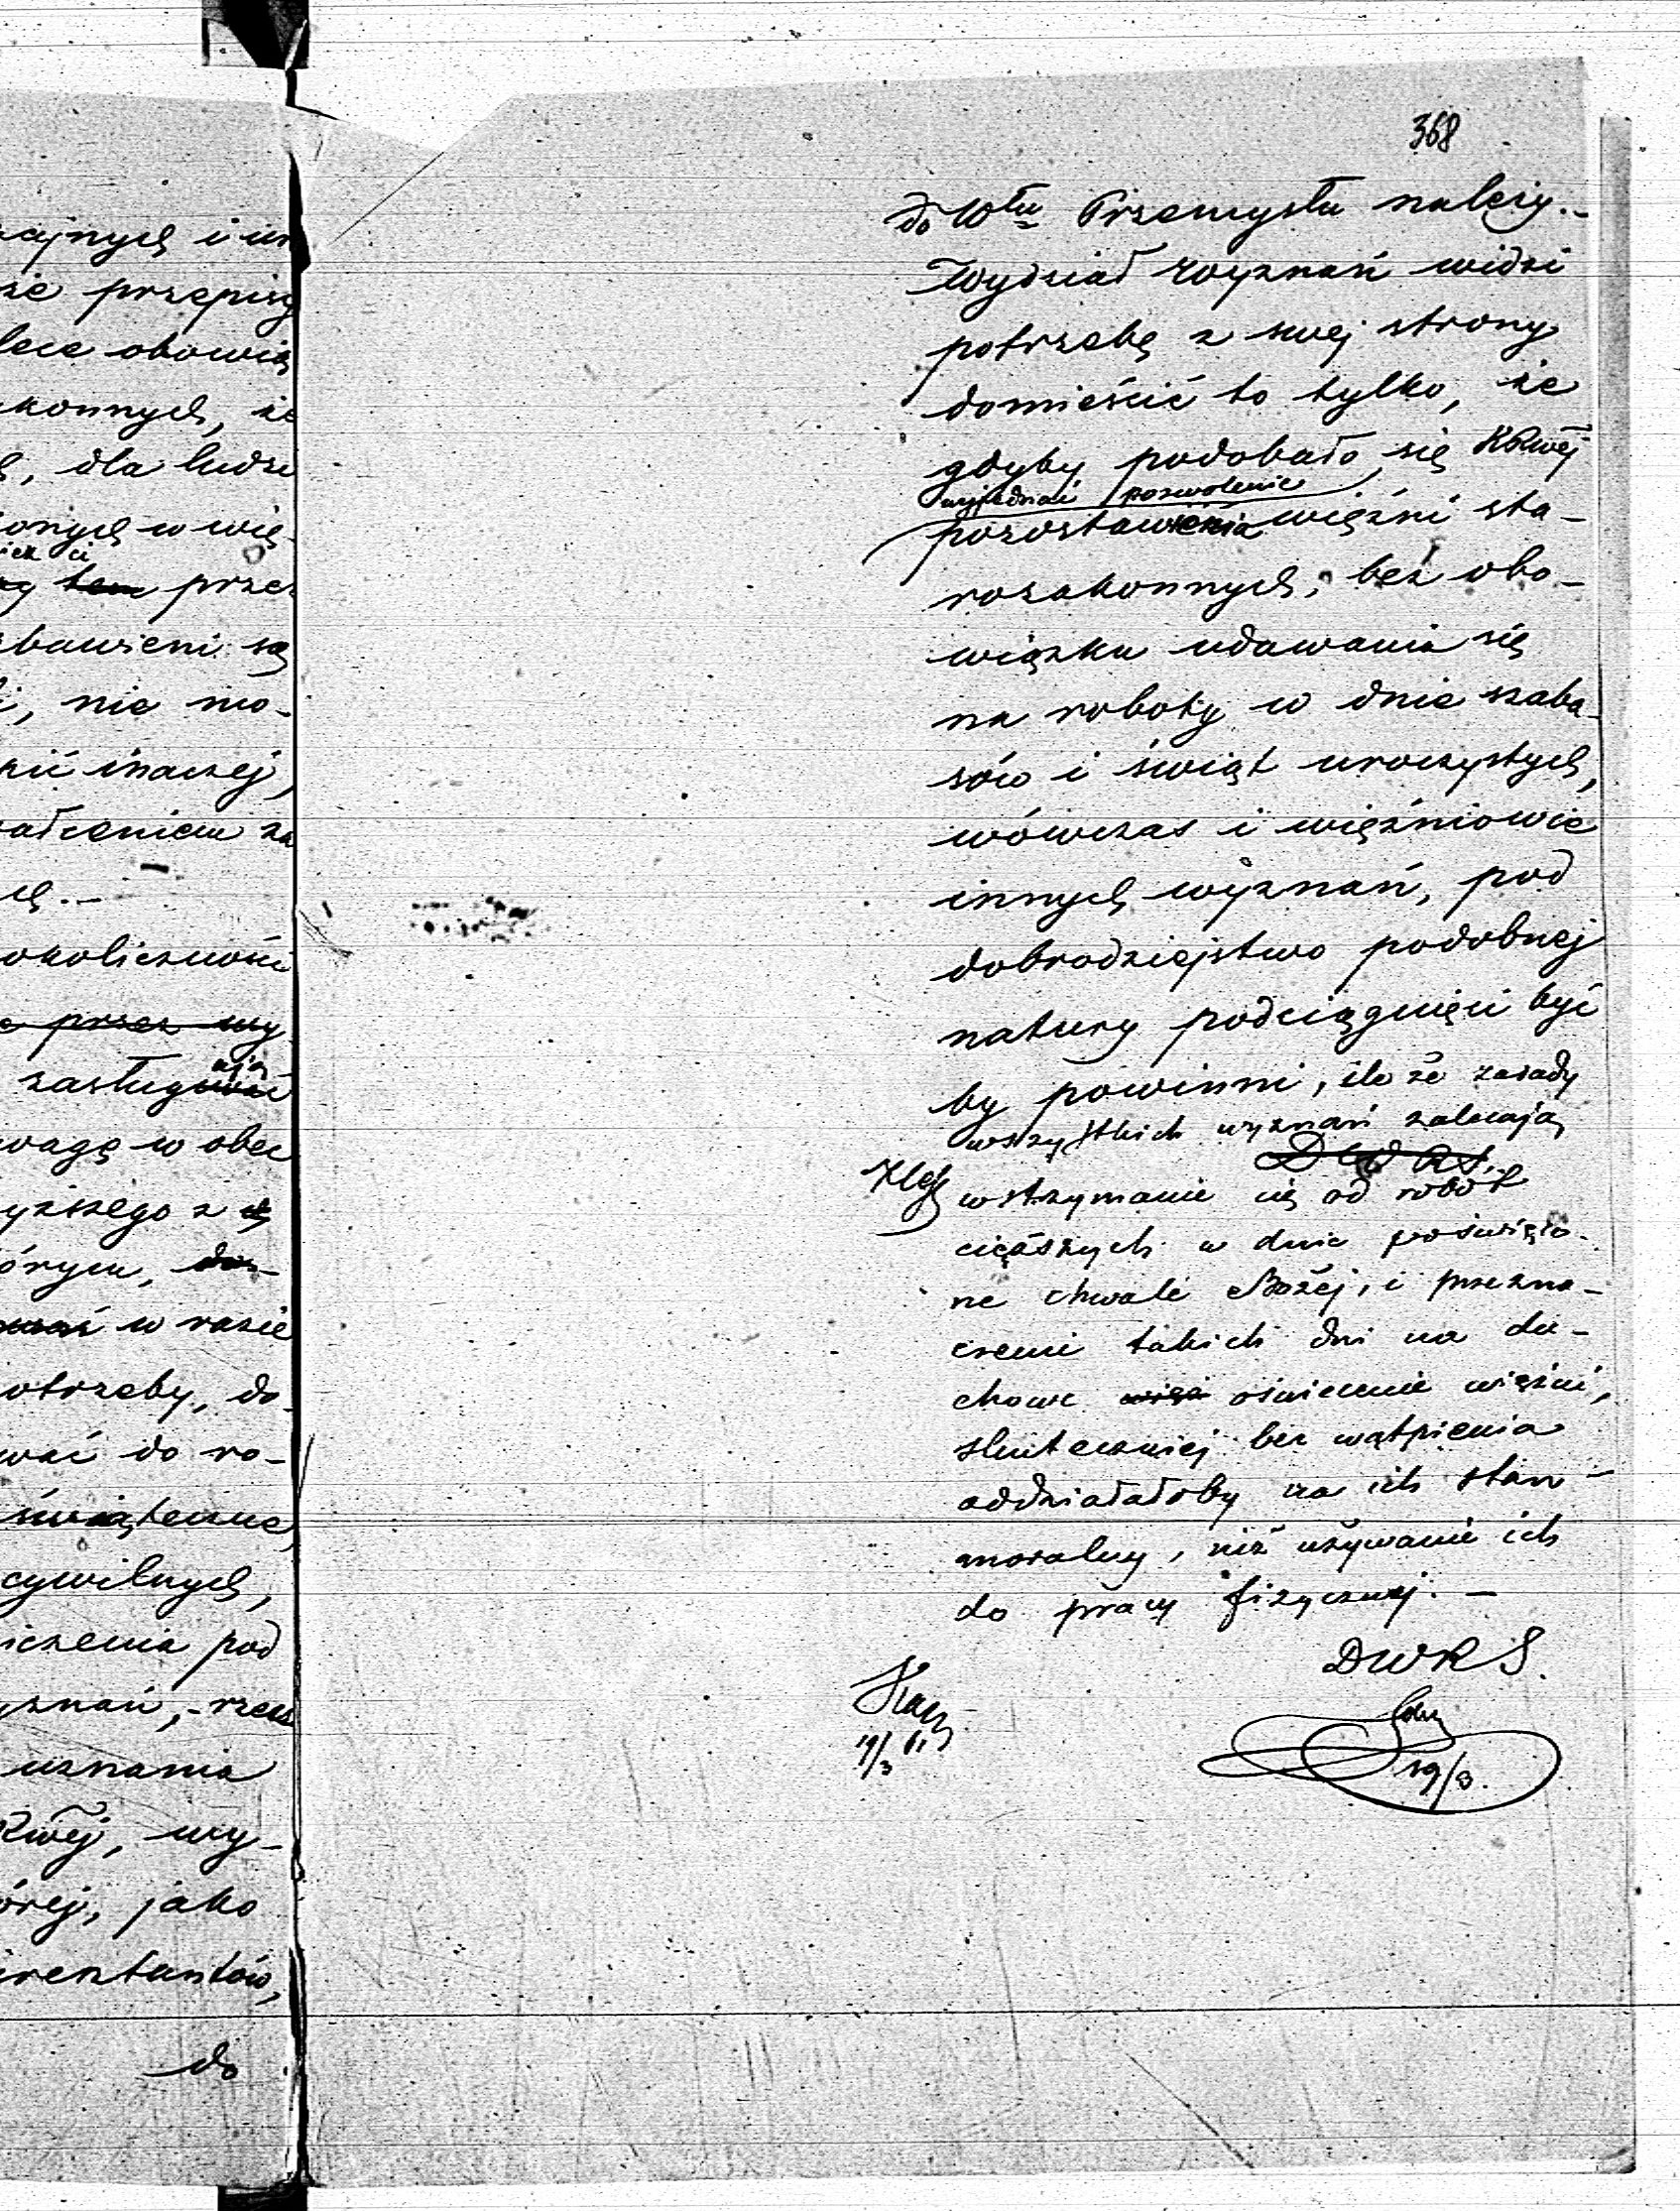 cyjnych i ur
że przepisy
lece obowią
konnych, że
, dla ludzi
onych w wię
tem przez
bawieni są
, nie mo-
kić inaczej,
ałceniem za
okoliczności
przez wy
zasługują
wagę w obec
yższego z
órym,
w razie
otrzeby, do
wać do ro-
świąteczne,
cywilnych,
iczenia pod
yznań, - rzecz
uznania
Rwej, wy-
órej, jako
areztantów,
do
368
do Włu Przemysłu należy.-
Wydział wyznań widzi
potrzebę z swej strony
domieścić to tylko, że
gdyby podobało się KRwej
wyjednać pozwolenie
pozostawienia więźni sta-
rozakonnych, bez obo-
wiązku udawania się
na roboty w dnie szaba-
sów i świąt uroczystych,
wówczas i więźniowie
innych wyznań, pod
dobrodziejstwo podobnej
natury podciągnięci być
by powinni, ile że zasady
wszystkich wyznań zalecają
DWRS.
wstrzymanie się od robót
cięższych w dnie poświęco-
ne chwale Bożej, i przezna-
czenie takich dni na du-
chowe oświecenie więźni,
skuteczniej bez wątpienia
oddziałałoby na ich stan
moralny, niż używanie ich
do pracy fizycznej. -
DWRS.
19/3 61
19/3.